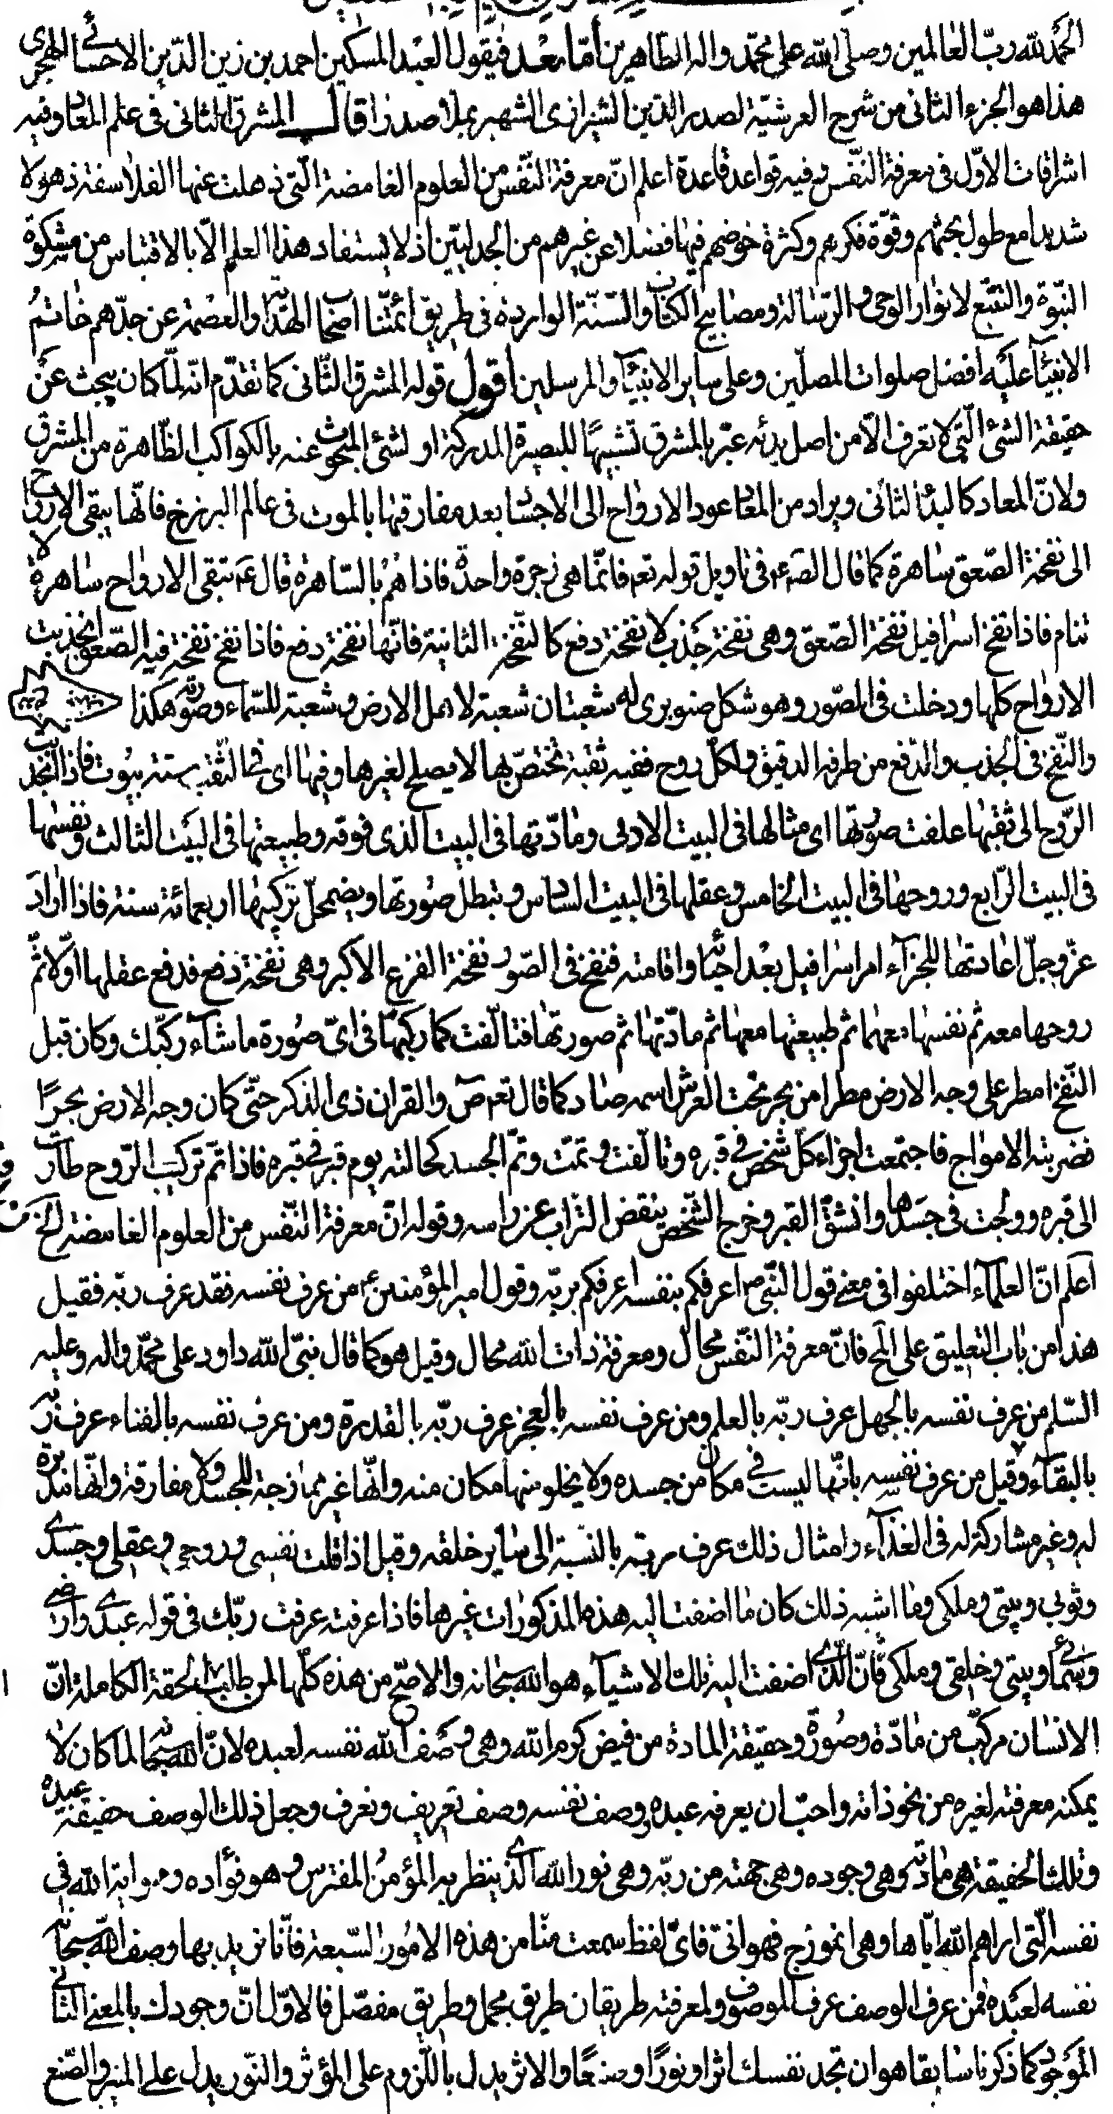 الحمد لله ربّ العالمين وصلى الله على محمّد واله الطاهرين أمّا بعد فيقول العبد المسكين احمد بن زين الدّين الاحسائی الهجری
هذا هو الجزء الثانى من شرح العرشيّة لصدر الدّين الشيرازى الشهير بملا صدرا قال المشرق الثانى فى علم المعاد وفيه
اشراقات الاوّل فى معرفة النّفس وفيه قواعد قاعدة اعلم انّ معرفة النّفس من العلوم الغامضة الّتى ذهلت عنها الفلاسفة ذهولا
شديدا مع طول بحثهم وقوّة فكرهم وكثرة خوضهم فيها فضلا عن غيرهم من الجدليّين اذ لا يستفاد هذا العلم الّا بالاقتباس من مشكوة
النّبوّة والتّتبّع لانوار الوحى والرّسالة ومصابيح الكتاب والسّنّة الواردة فى طريق ائمّتنا اصحاب الهداية والعصمة عن جدّهم خاتم
الانبيآء عليه افضل صلوات المصلّين وعلى ساير الانبيآء والمرسلين أقول قوله المشرق الثّانى كما تقدّم انّه لمّا كان يبحث عن
حقيقة الشئ الّتى لا تعرف الّا من اصل بدئه عبّر بالمشرق تشبيهًا للبصيرة المدركة او لشئ المبحوث عنه بالكواكب الظّاهرة من المشرق
ولانّ المعاد كالبدء الثانى ويراد من المعاد عود الارواح الى الاجساد بعد مفارقتها بالموت فى عالم البرزخ فانّها يبقى الارواح
الى نفخة الصّعق ساهرة كما قال الصّ ع فى تاويل قوله تع فانّما هى زجرة واحدة فاذا هم بالسّاهرة قال ع تبقى الارواح ساهرة لا
تنام فاذا نفخ اسرافيل نفخة الصّعق وهى نفخة جذب لا نفخة دفع كالنفخة الثانية فانّها نفخة دفع فاذا نفخ نفخة فيه الصّعق انجذبت
الارواح كلها ودخلت فى الصّور وهو شكل صنوبرى له شعبتان شعبة لاهل الارض وشعبة للسّماء وصورته هكذا
والنّفخ فى الجذب والدّفع من طرفه الدقيق ولكلّ روح فيه ثقبة تختصّ بها لا يصلح لغيرها وفيها اى فى الثّقبة ستة بيوت فاذا انجذبت
الرّوح الى ثقبها علقت صورتها اى مثالها فى البيت الاولى ومادّتها فى البيت الذى فوقه وطبيعتها فى البيت الثالث ونفسها
فى البيت الرّابع وروحها فى البيت الخامس وعقلها فى البيت السادس وتبطل صورتها ويضمحلّ تركيبها اربعمائة سنة فاذا اراد
عزّ وجلّ اعادتها للجزآء امر اسرافيل بعد احيائه واقامته فنفخ فى الصّور نفخة الفزع الاكبر وهى نفخة دفع فدفع عقلها اوّلا ثمّ
روحها معه ثم نفسها معهما ثم طبيعتها معها ثم مادّتها ثم صورتها فتالّفت كما ركبها فى اىّ صورة ما شاء ركّبك وكان قبل
النّفخ امطر على وجه الارض مطرا من بحر تحت العرش اسمه صاد كما قال تع ص والقران ذى الذكر حتّى كان وجه الارض بحرًا
فضربته الامواج فاجتمعت اجزاء كلّ شخص فى قبره وتالّفت وتمّت وتمّ الجسد كحالته يوم قبر فى قبره فاذا تمّ تركيب الرّوح طارت
الى قبره وولجت فى جسدها وانشقّ القبر وخرج الشّخص ينفض التراب عن راسه وقوله انّ معرفة النّفس من العلوم الغامضة الخ
اعلم انّ العلمآء اختلفوا فى معنى قول النّبىّ ص اعرفكم بنفسه اعرفكم بربّه وقول امير المؤمنين ع من عرف نفسه فقد عرف ربّه فقيل
هذا من باب التعليق على المح فانّ معرفة النّفس محال ومعرفة ذات الله محال وقيل هو كما قال نبىّ الله داود على محمّد واله وعليه
السّلم من عرف نفسه بالجهل عرف ربّه بالعلم ومن عرف نفسه بالعجز عرف ربّه بالقدرة ومن عرف نفسه بالفناء عرف ربّه
بالبقآء وقيل من عرف نفسه بانّها ليست فى مكان من جسده ولا يخلو منها مكان منه وانّها غير ممازجة للجسد ولا مفارقة وانّها مدبّرة
له وغير مشاركة له فى الغذآء وامثال ذلك عرف ربّه بالنّسبة الى ساير خلقه وقيل اذا قلت نفسى وروحى وعقلى وجسدى
وثوبى وبيتى وملكى وما اشبه ذلك كان ما اضفت اليه هذه المذكورات غيرها فاذا عرفته عرفت ربّك فى قوله عبدى وارضى
وسمائى وبيتى وخلقى وملكى فانّ الّذى اضفت اليه تلك الاشيآء هو الله سبحانه والاصّح من هذه كلّها لمن طلب الحقة الكاملة انّ
الانسان مركّب من مادّة وصورة وحقيقة المادة من فيض كرم الله وهى وصف الله نفسه لعبده لانّ الله سبحانه لما كان لا
يمكنه معرفته لغيره من نحو ذاته واحبّ ان يعرفه عبده وصف نفسه وصف تعريف وتعرف وجعل ذلك الوصف حقيقة عبده
وتلك الحقيقة هى مادّته وهى وجوده وهى جهته من ربّه وهى نور الله الّذى ينظر به المؤمن المفترس وهو فؤاده وهو اية الله فى
نفسه الّتى اراهم الله ايّاها وهى انموزج فهوانى فاىّ لفظ سمعت منّا من هذه الامور السّبعة فانّا نريد بها وصف الله سبحانه
نفسه لعبده فمن عرف الوصف عرف الموصوف ولمعرفته طريقان طريق مجمل وطريق مفصّل فالاوّل انّ وجودك بالمعنى الثّانى
الموجود كما ذكرنا سابقا هو ان تجد نفسك اثرا ونورًا وصنعًا والاثر يدل باللّزوم على المؤثر والنّور يدل على المنير والصّنع